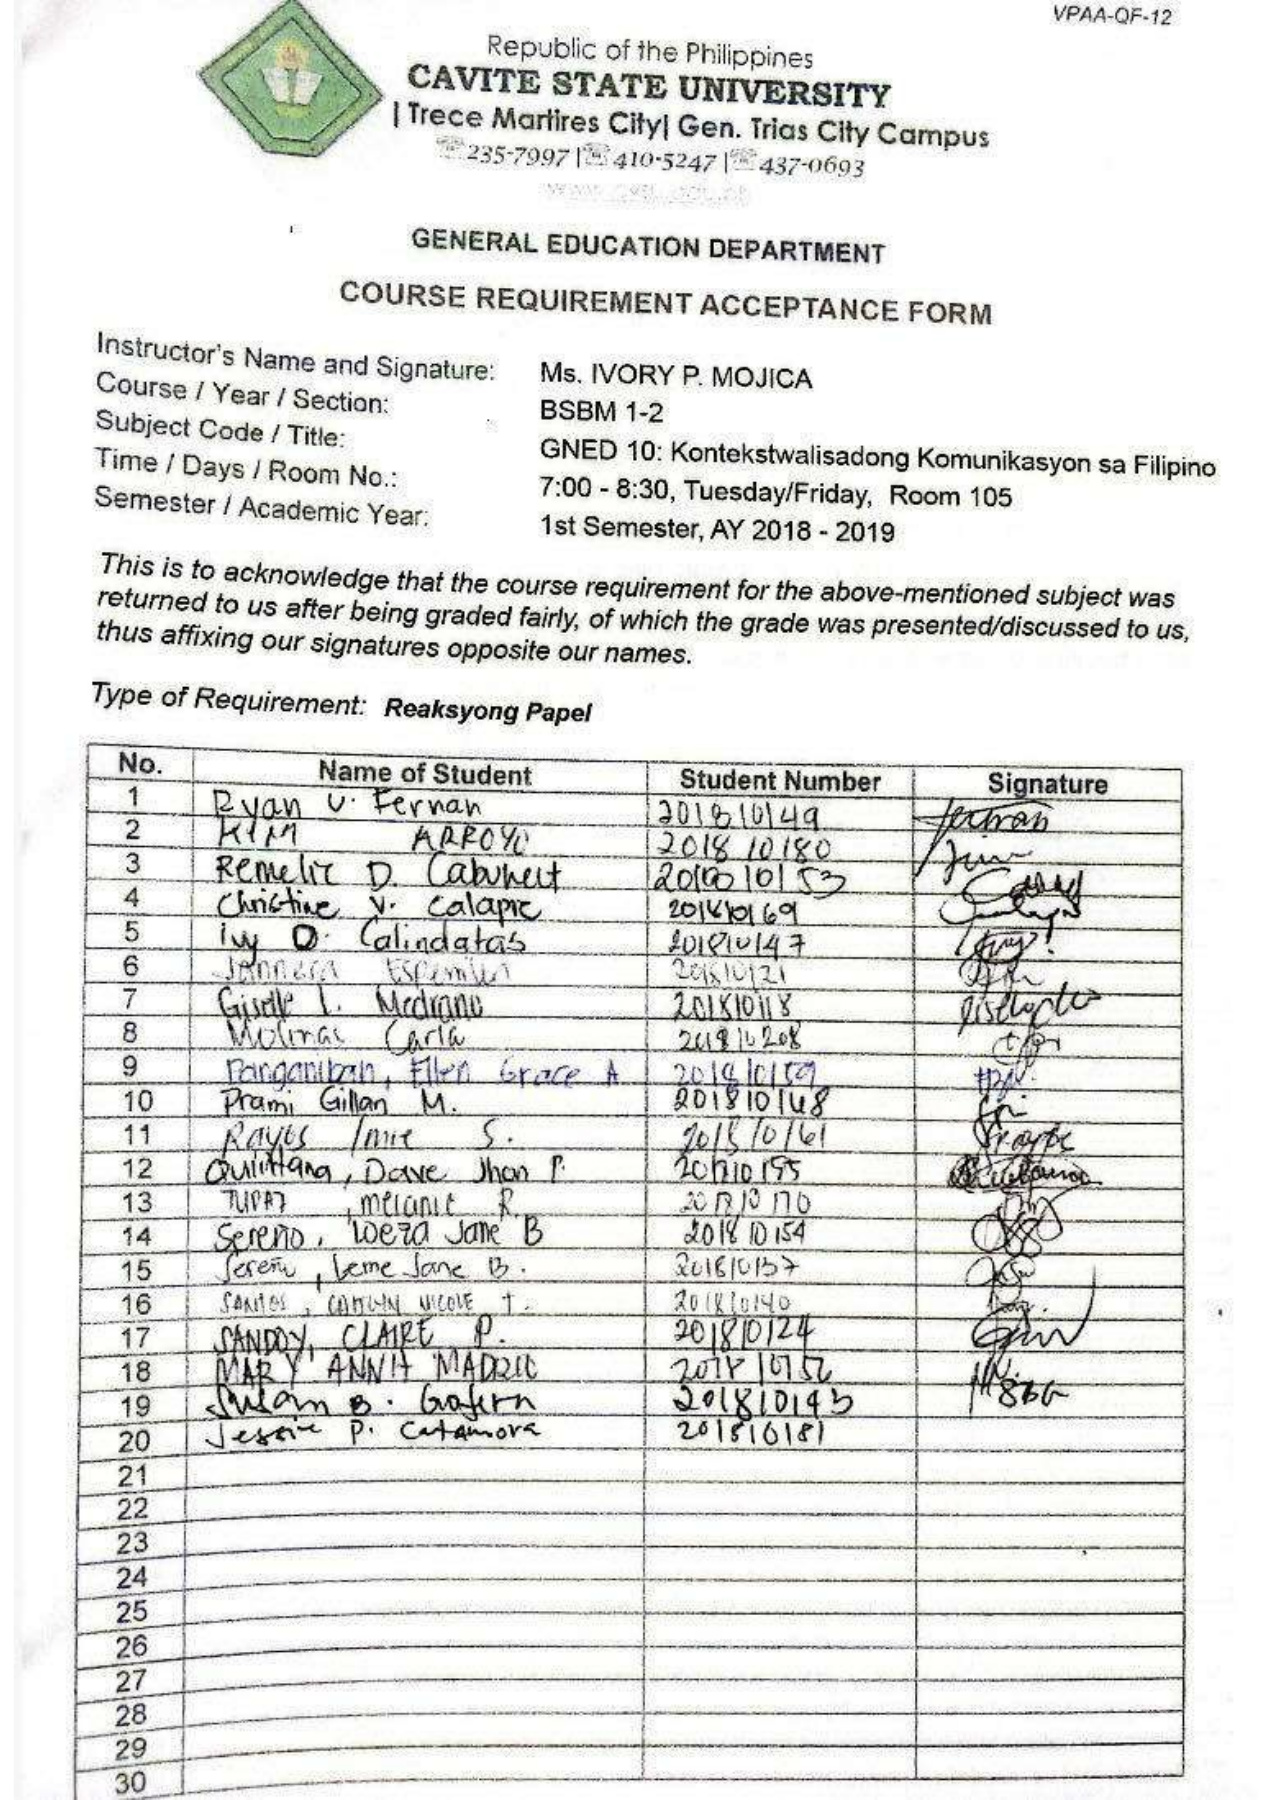 VPAA-QF-12
Republic of the Philippines
CAVITE STATE UNIVERSITY
| Trece Martires City| Gen. Trias City Campus
☏235-7997 |☏410-5247 |☏437-0693
GENERAL EDUCATION DEPARTMENT
COURSE REQUIREMENT ACCEPTANCE FORM
Instructor's Name and Signature: Ms. IVORY P. MOJICA
Course / Year / Section: BSBM 1-2
Subject Code / Title: GNED 10: Kontekstwalisadong Komunikasyon sa Filipino
Time / Days / Room No.: 7:00 - 8:30, Tuesday/Friday, Room 105
Semester / Academic Year: 1st Semester, AY 2018 - 2019
This is to acknowledge that the course requirement for the above-mentioned subject was
returned to us after being graded fairly, of which the grade was presented/discussed to us,
thus affixing our signatures opposite our names.
Type of Requirement: Reaksyong Papel
No. Name of Student Student Number Signature
1 Ryan V. Fernan 201810149
2 KIM ARROYO 201810180
3 D.
4 Christine V. 201810169
5 Ivy D. Calindatas 201810147
6
7 Giselle L. Medrano 201810118
8 Molinas Carla 201810208
9 Panganiban, Ellen Grace A 201810159
10 Prami Gillan M. 201810148
11 Rayos Imie S. 201810161
12 Quintana, Dave Jhon P.
13 melanie R.
14 Sereño, Jane B 201810154
15 Jane B. 201810137
16 SANTOS, NICOLE T. 201810140
17 SANDOY, CLAIRE P. 201810124
18 MARY
19 Susan B. 201810143
20 Jessie P. 201810181
21
22
23
24
25
26
27
28
29
30